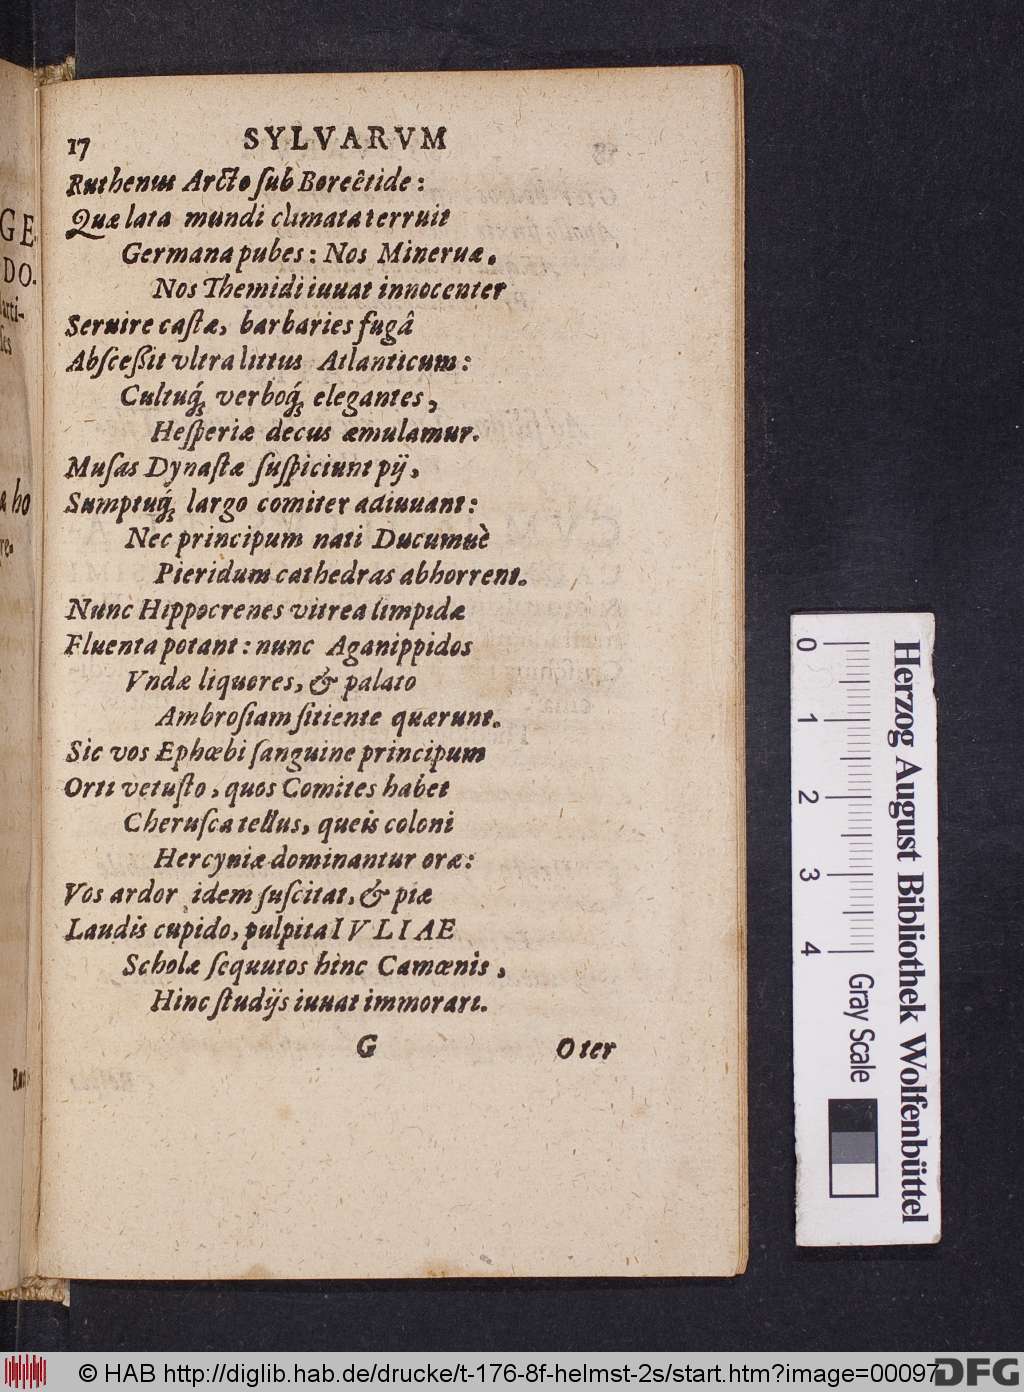 17 SYLVARVM
Ruthenus Arcto ſub Boreêtide:
Quæ lata mundi climata terruit
Germana pubes: Nos Mineruæ.
Nos Themidi iuuat innocenter
Seruire caſtæ, barbaries fugâ
Abſceßit vltra littus Atlanticum:
Cultuq́; verboq́; elegantes,
Heſperiæ decus æmulamur.
Muſas Dynaſtæ ſuſpiciunt pij,
Sumptuq́; largo comiter adiuuant:
Nec principum nati Ducumuè
Pieridum cathedras abhorrent.
Nunc Hippocrenes vitrea limpidæ
Fluenta potant: nunc Aganippidos
Vndæ liquores, & palato
Ambroſiam ſitiente quærunt.
Sic vos Ephœbi ſanguine principum
Orti vetuſto, quos Comites habet
Cheruſca tellus, queis coloni
Hercyniæ dominantur oræ:
Vos ardor idem ſuſcitat, & piæ
Laudis cupido, pulpita IVLIAE
Scholæ ſequutos hinc Camœnis,
Hinc ſtudijs iuuat immorari.
G Oter
GE
DO.
arti-
ho
re.
0 1 2 3 4
Gray Scale
Herzog August Bibliothek Wolfenbüttel
© HAB http://diglib.hab.de/drucke/t-176-8f-helmst-2s/start.htm?image=00097
DFG